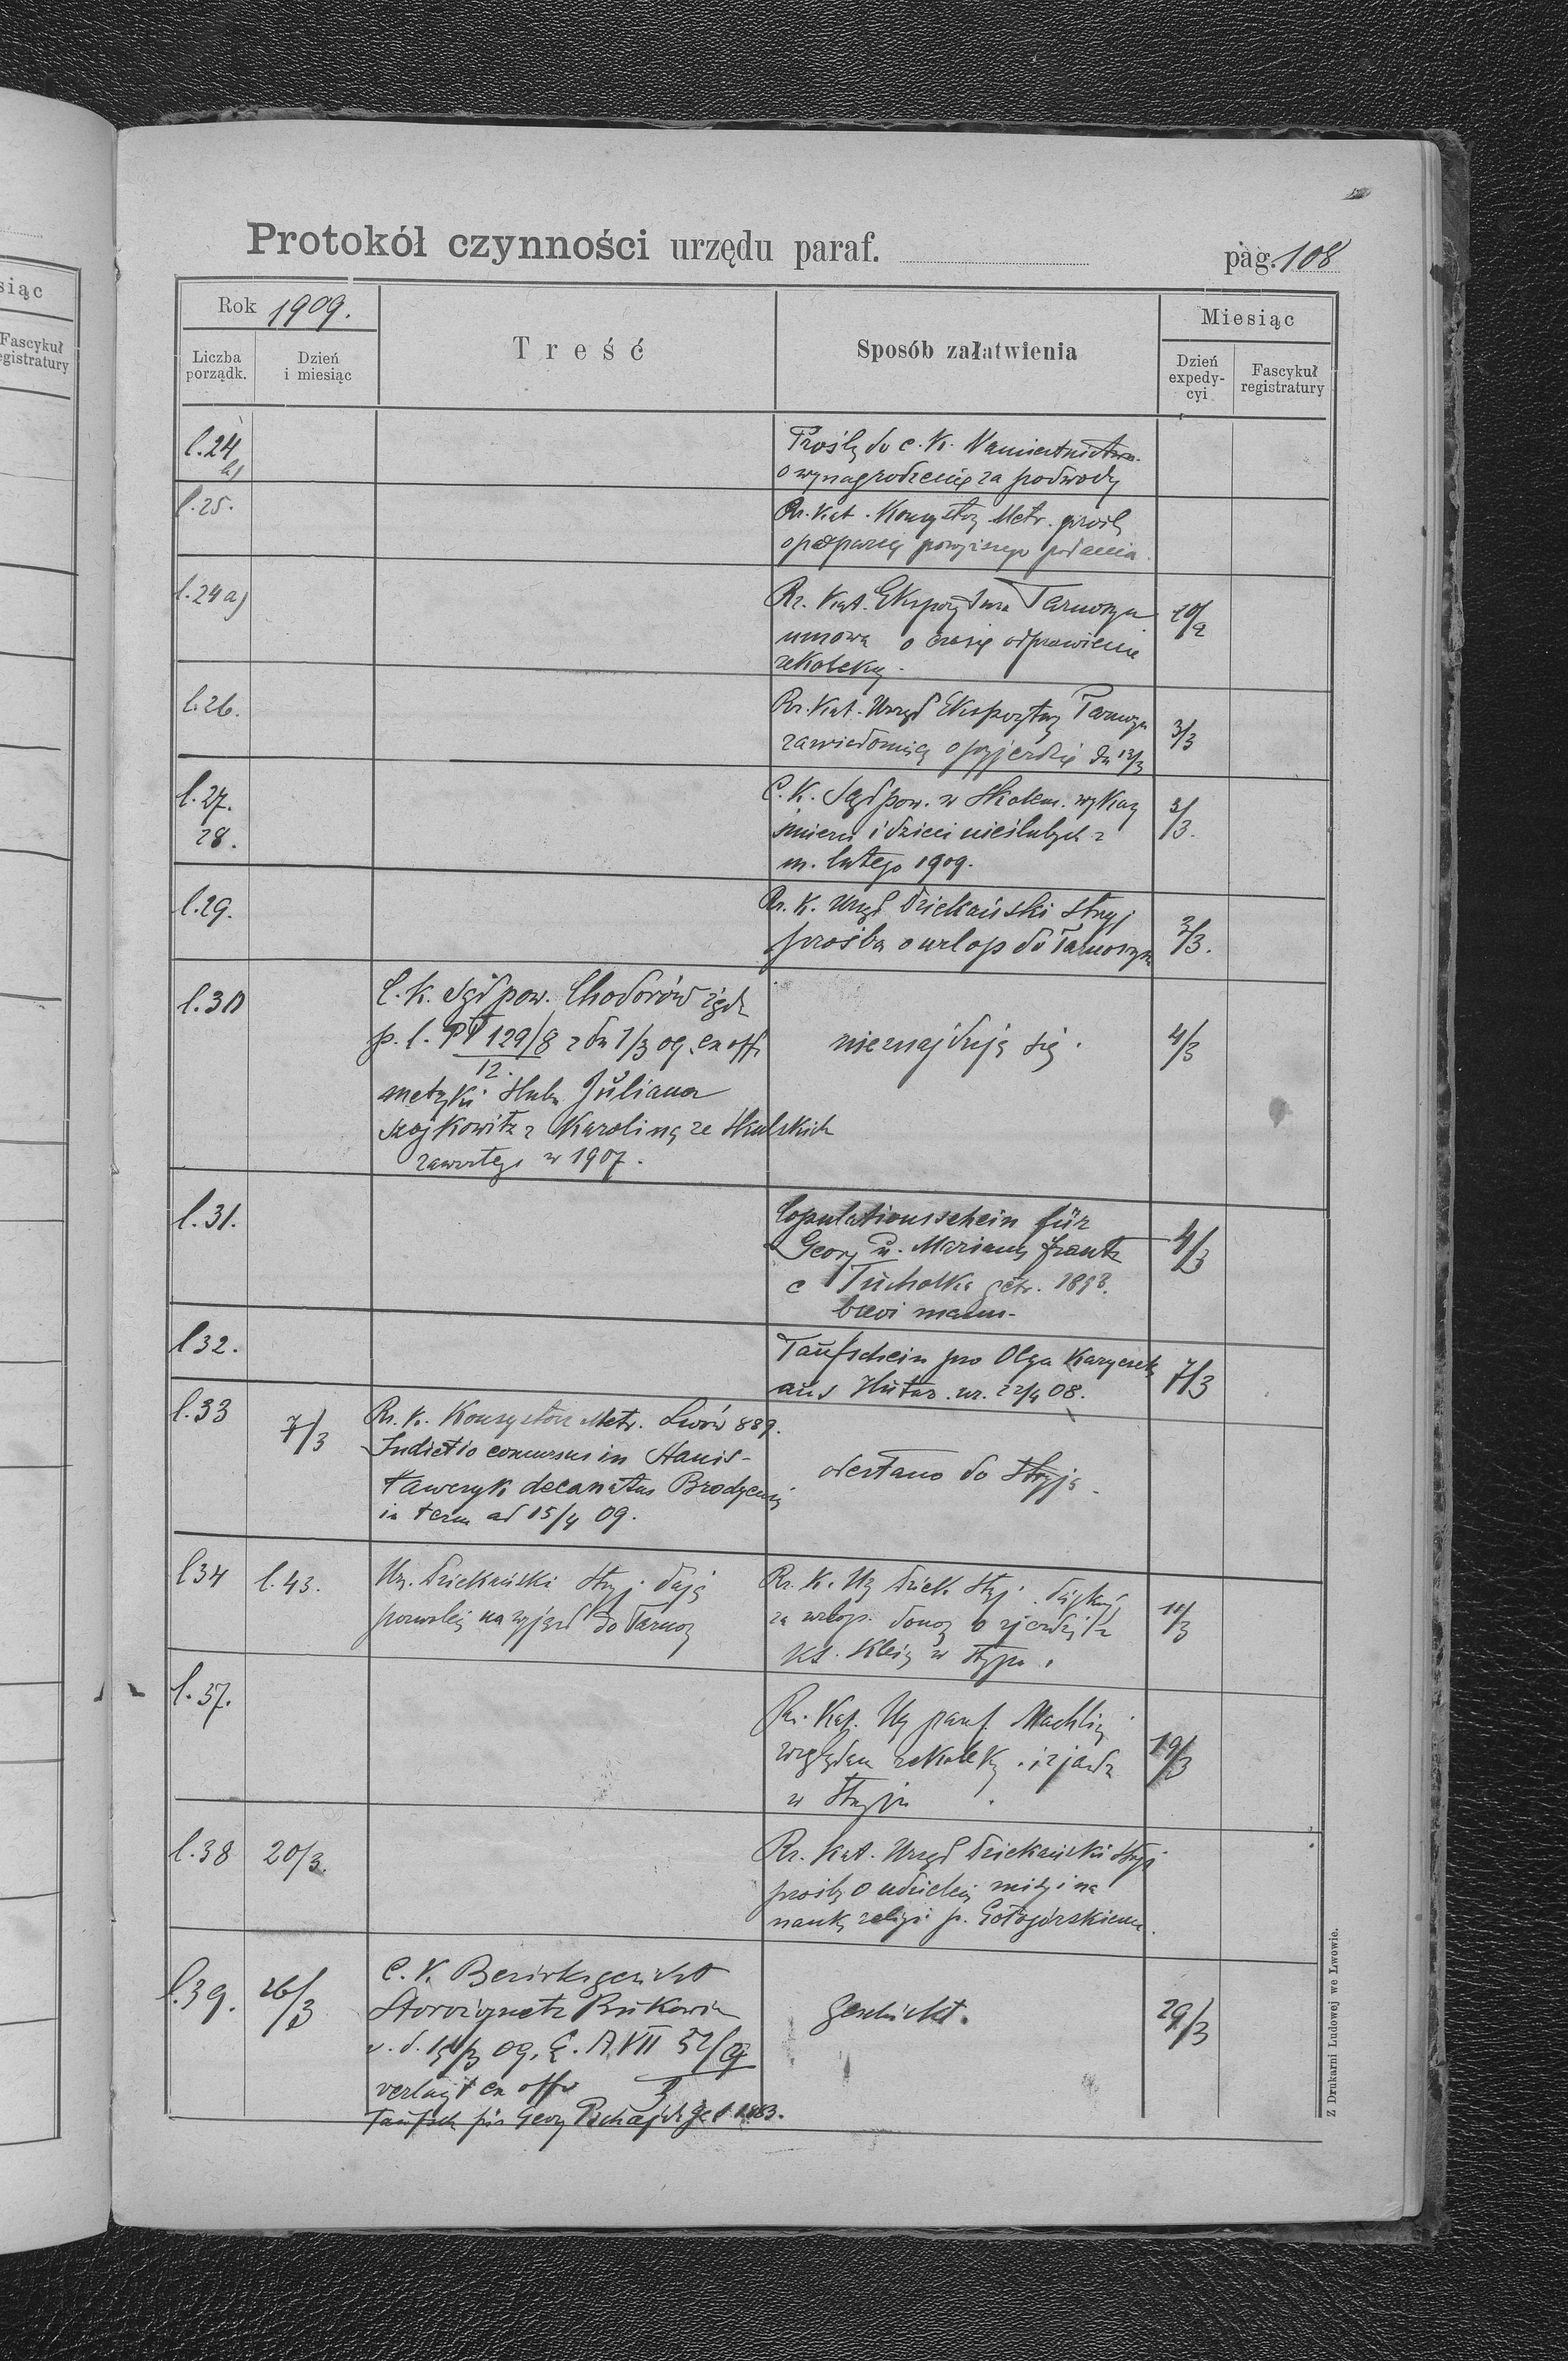 siąc
Fascykuł
egistratury
Protokół czynności urzędu paraf.
pag. 108
Rok 1909.
Miesiąc
Liczba porządk.
Dzień i miesiąc
Treść
Sposób załatwienia
Dzień expedycyi
Fascykuł registratury
l.24
Prośby do c. K. Namiestnictwa
o wynagrodzenie za podwody
l.25.
Rz. Kat. Konsystorz Metr. prośbę
o poparcie powyższego podania.
l.24a)
Rz. Kat. Ekspozytura Tarnoszyn
umowa o czasie odprawienie
rekolekcy.
l.26.
Rz. Kat. Urząd Ekspozytury
zawiadomię o przyjeździe dn 13/3
3/3
l.27.
28.
C. K. Sąd pow. w Skolem. wykazy
śmierci i dzieci nieślubych z
m. lutego 1909.
3/3.
l.29.
Rz. K. Urząd Dziekański Stryj
prośba o urlop do Tarnoszyn
3/3.
l.30
C. K. Sąd pow. Chodorów żąda
p. l. 129/8 z dn 1/3 09, ex offo
12.
metryki ślubu Juliana
z Karoliną ze Skulskich
zawartego w 1907.
nieznajduje się.
4/3
l.31.
Copulationsschein für
Georg u. Marianna Frantz
c Tucholka getr. 1893.
brevi manu.
4/3
l32.
Taufschein pro Olga
aus Hutar. ur. 22/4 08.
7/3
l.33
7/3
Rz. K. Konsystorz Metr. Lwów 889.
Indictio concursus in Stanis-
ławczyk decanatus Brodyensis
in term ad 15/4 09.
odesłano do Stryja.
l34
l.43.
Urz. Dziekański Stryj daje
pozwoleń na wyjazd do Tarnosz
Rz. K. Urz Dziek Stryj. dziękuj
za urlop. donosz o zjeździe
ks. w Stryju.
11/3
l.37.
Rz. Kat. Urz paraf. Machlin
względem rekolekcy. i zjazdu
w Stryju.
19/3
l.38
20/3.
Rz. Kat. Urząd Dziekański Stryj
prośby o udzieleń misyi na
naukę religii p. Gołogórskiemu.
l.39.
26/3
C. K. Bezirksgericht
Storożynetz Bukowin
v. d. 15/3 09, C. A. VII 52/9
3
verlangt ex offo
Taufsch für Georg geb 1883.
geschickt.
29/3
Z Drukarni Ludowej we Lwowie.